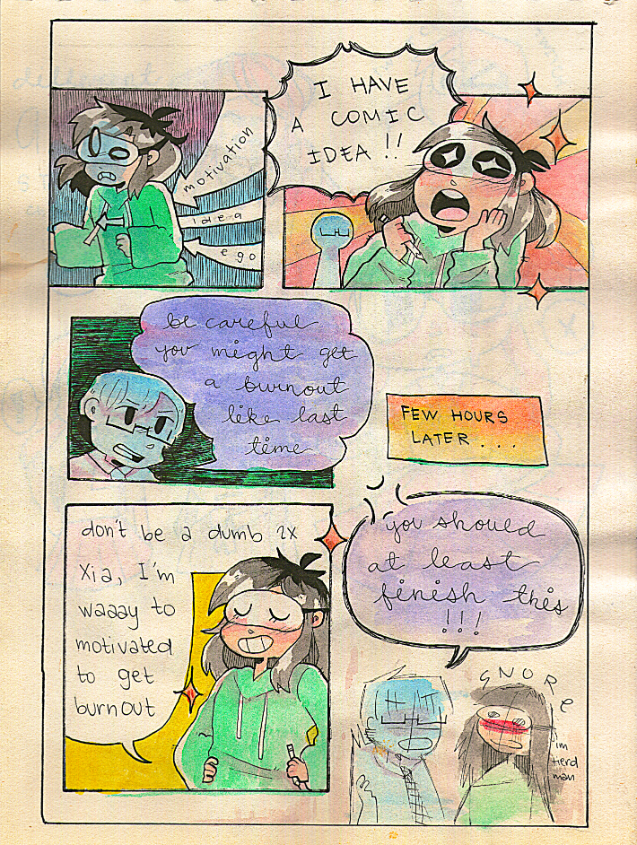 motivation
idea
ego
I HAVE
A COMIC
IDEA !!
be careful
you might get
a burnout
like last
time
FEW HOURS
LATER . . .
don't be a dumb 2x
Xia, I'm
waaay to
motivated
to get
burnout
you should
at least
finish this
!!!
SNORE
I'm
tierd
man